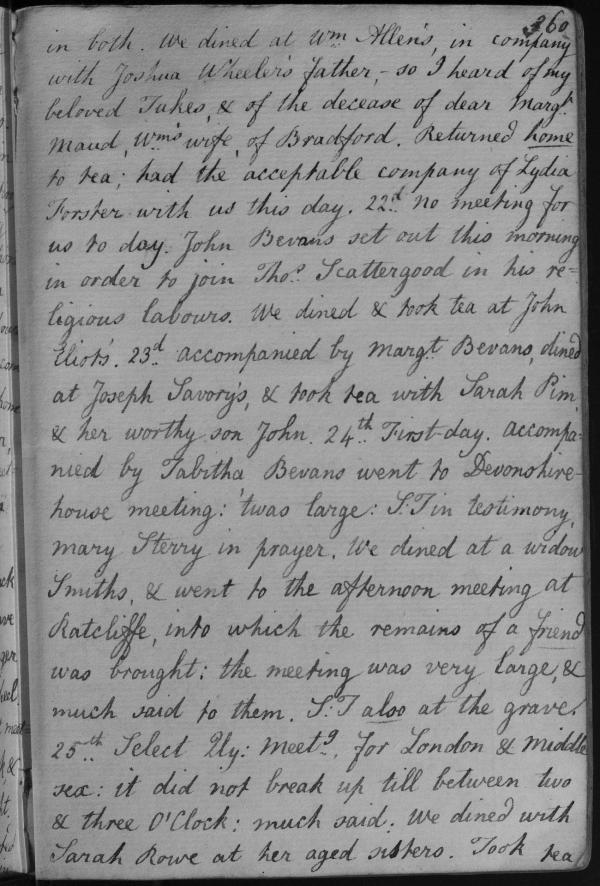 260
in both. We dined at Wm Allen's, in company
with Joshua Wheeler's father, - so I heard of my
beloved Tukes, & of the decease of dear Margt
Maud, Wm's wife, of Bradford. Returned home
to tea; had the acceptable company of Lydia
Forster with us this day. 22d no meeting for
us to day. John Bevans set out this morning
in order to join Thos Scattergood in his re=
ligious labours. We dined & took tea at John
Eliot's. 23d accompanied by Margt Bevans, dined
at Joseph Savory's, & took tea with Sarah Pim
& her worthy son John. 24th First-day. accompa-
nied by Tabitha Bevans went to Devonshire-
house meeting: 'twas large: S:T in testimony,
mary Sterry in prayer. We dined at a widow
Smiths, & went to the afternoon meeting at
Ratcliffe, into which the remains of a friend
was brought: the meeting was very large, &
much said to them. S:T also at the grave.
25th Select Qly: Meetg. for London & Middle
sex: it did not break up till between two
& three O'Clock: much said. We dined with
Sarah Rowe at her aged sisters. Took tea